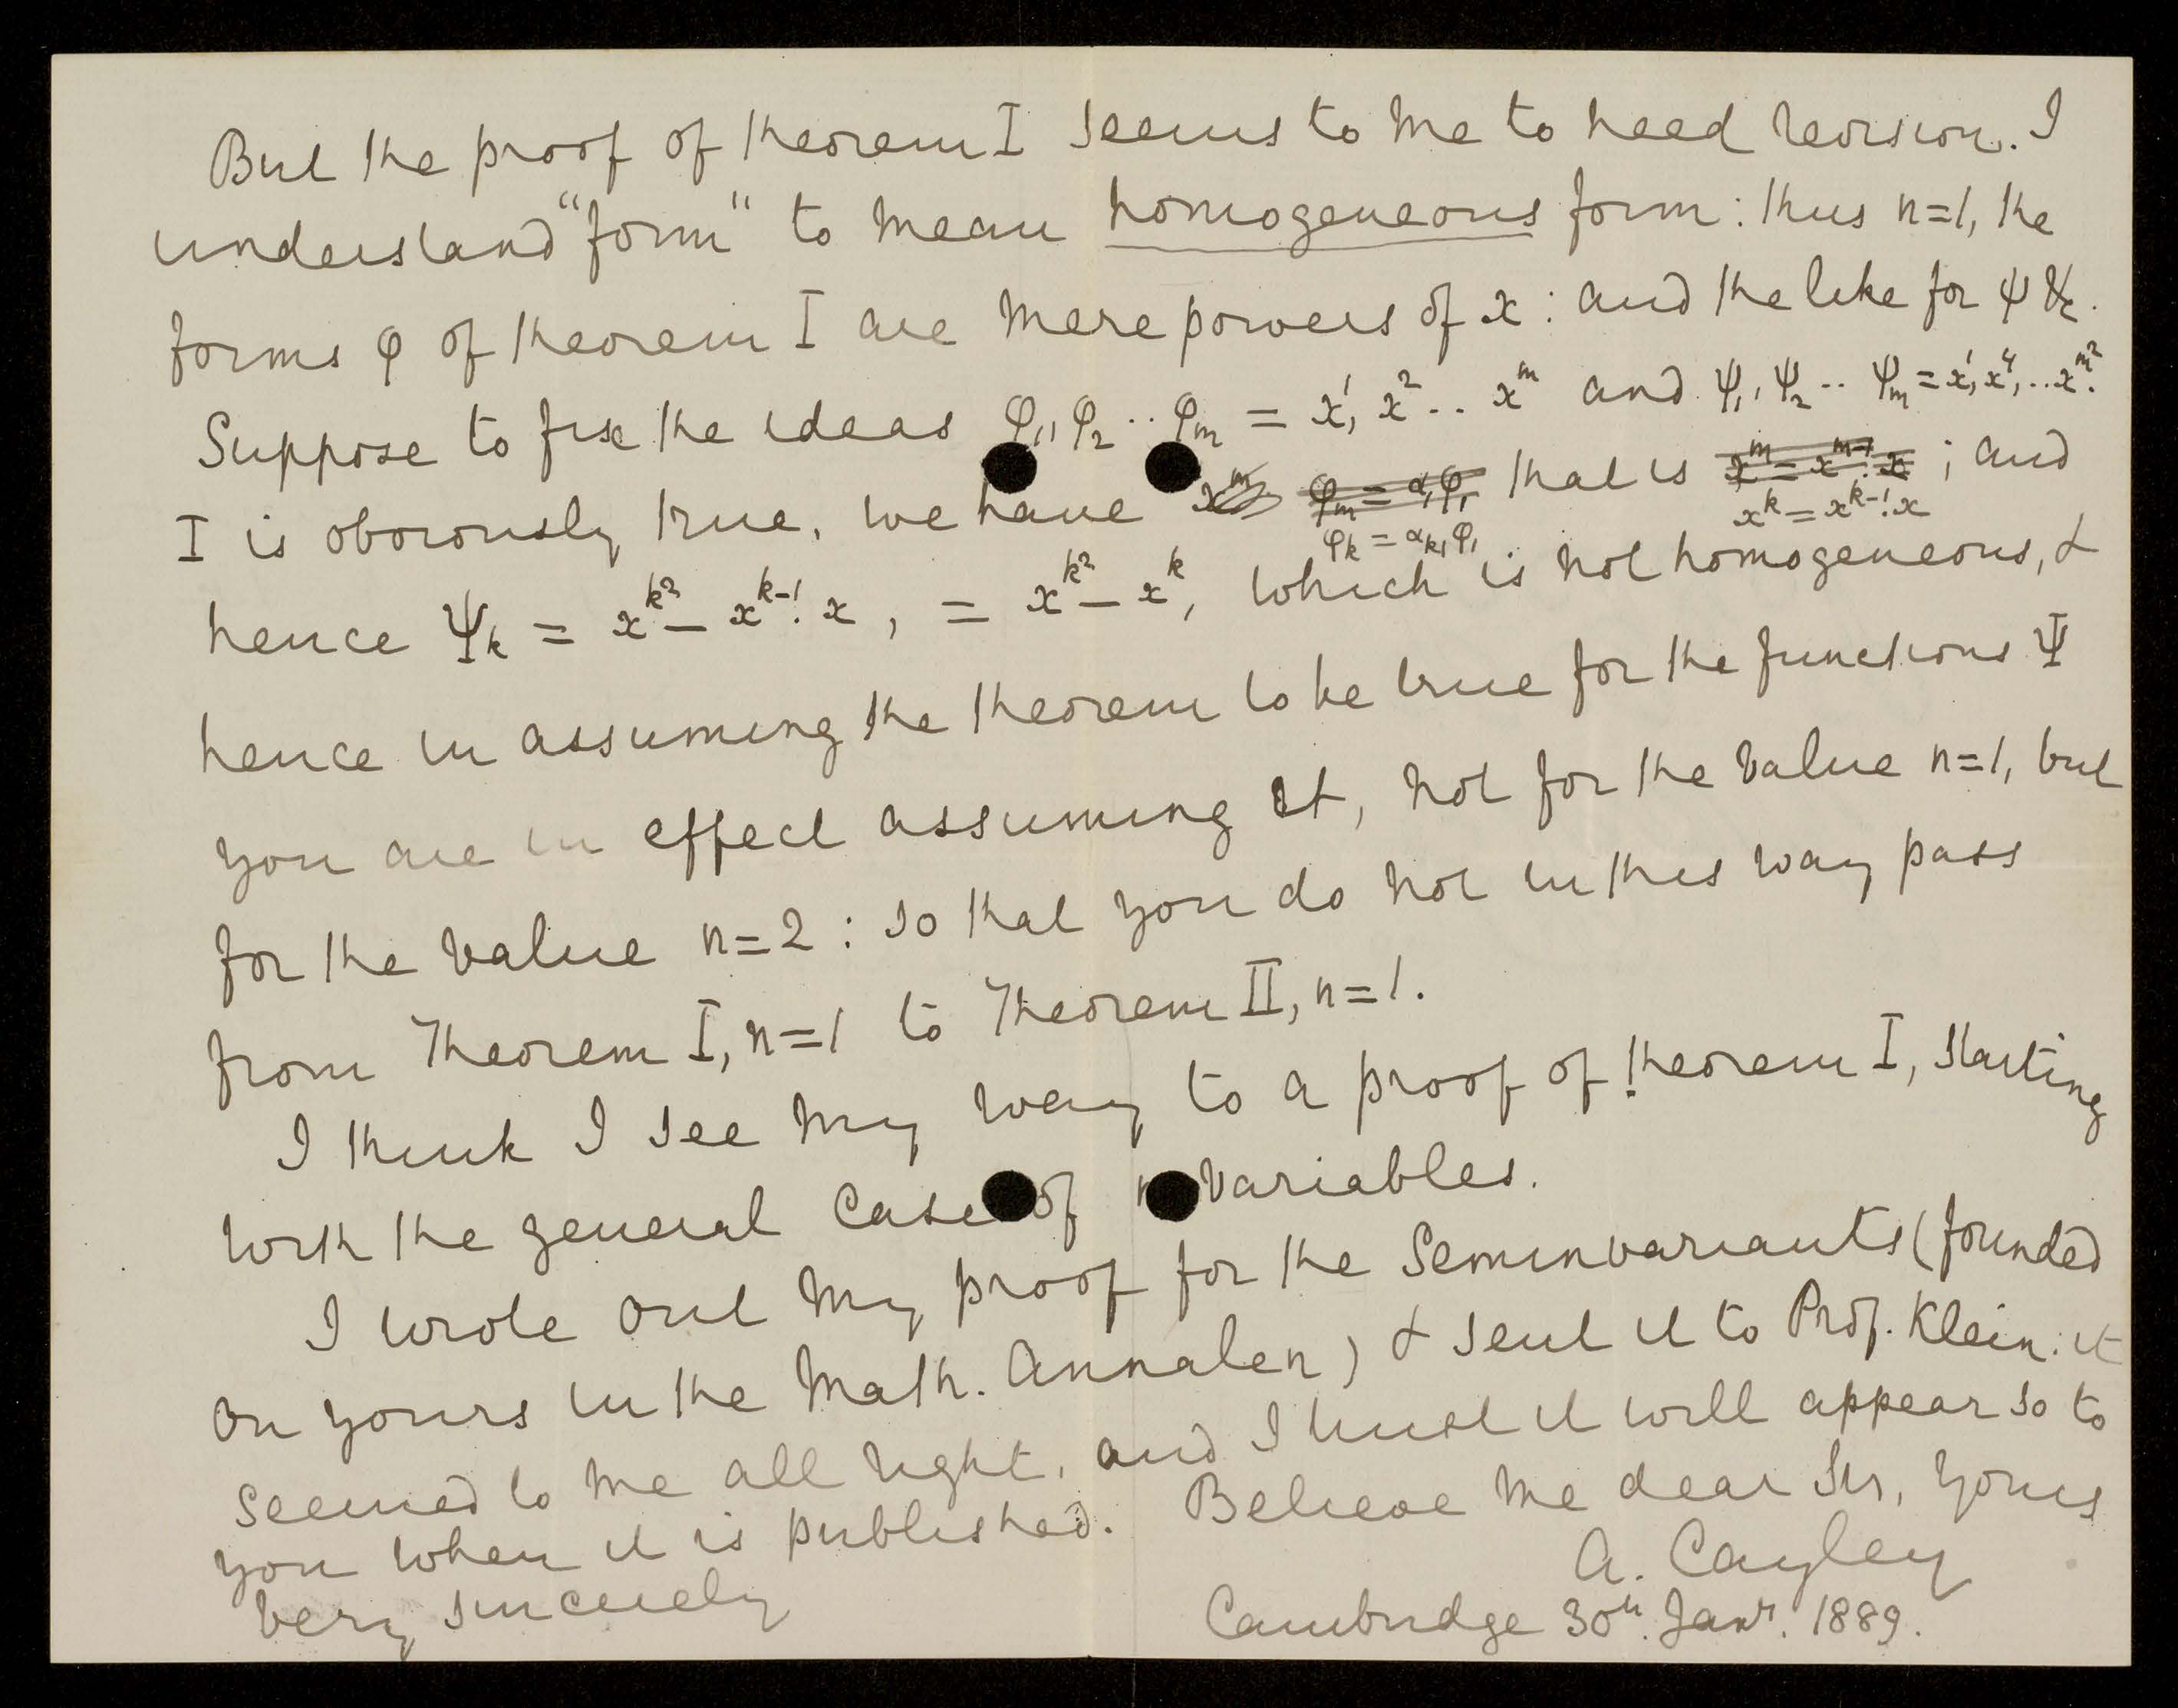 But the proof of theorem I seems to me to need revision. I
understand "form" to mean homogeneous form: thus n=1, the
forms φ of theorem I are mere powers of x: and the like for ψ &c.
Suppose to fix the ideas φ₁, φ₂ .. φₘ = x¹, x² .. xᵐ and ψ₁, ψ₂ .. ψₘ = x¹, x⁴, .. x^{m²}.
I is obviously true, we have xᵐ φₘ = α₁φ₁ that is xᵐ = xᵐ⁻¹. x ; and
φₖ = αₖ₁φ₁ xᵏ = xᵏ⁻¹. x
hence Ψₖ = x^{k²} – xᵏ⁻¹. x, = x^{k²} – xᵏ, which is not homogeneous, &
hence in assuming the theorem to be true for the functions Ψ
you are in effect assuming it, not for the value n=1, but
for the value n=2: so that you do not in this way pass
from Theorem I, n=1 to Theorem II, n=1.
I think I see my way to a proof of theorem I, starting
with the general case of n variables.
I wrote out my proof for the Seminvariants (founded
on yours in the Math. Annalen) & sent it to Prof. Klein: it
seemed to me all right, and I trust it will appear so to
you when it is published. Believe me dear Sir, yours
very sincerely
A. Cayley
Cambridge 30th. Janr. 1889.